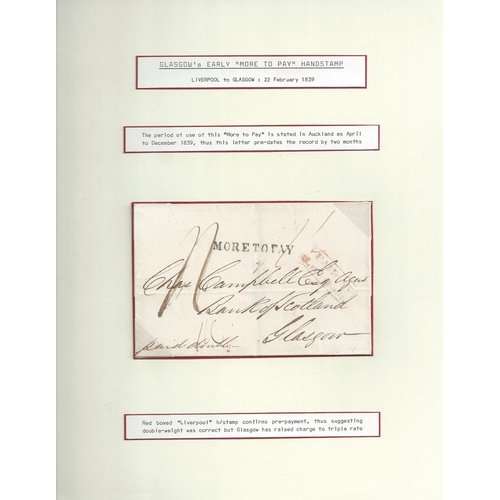 GLASGOW's EARLY "MORE TO PAY" HANDSTAMP
LIVERPOOL to GLASGOW : 22 February 1839
The period of use of this "More to Pay" is stated in Auckland as April
to December 1839, thus this letter pre-dates the record by two months
MORE TO PAY
Chas Campbell Esq Agent
Bank of Scotland
Glasgow
paid double
Red boxed "Liverpool" h/stamp confirms pre-payment, thus suggesting
double-weight was correct but Glasgow has raised charge to triple rate